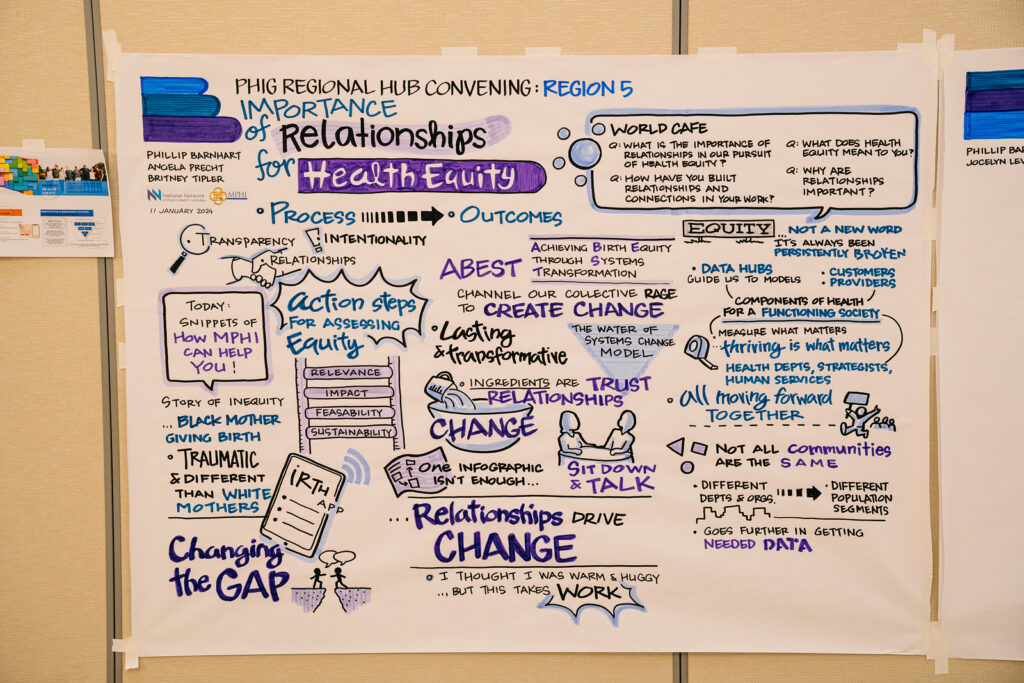 PHIG REGIONAL HUB CONVENING: REGION 5
IMPORTANCE
of Relationships
for Health Equity
PHILLIP BARNHART
ANGELA PRECHT
BRITNEY TIPLER
National Network
of Public Health Institutes
MPHI
11 JANUARY 2024
WORLD CAFE
Q: WHAT IS THE IMPORTANCE OF
RELATIONSHIPS IN OUR PURSUIT
OF HEALTH EQUITY?
Q: HOW HAVE YOU BUILT
RELATIONSHIPS AND
CONNECTIONS IN YOUR WORK?
Q: WHAT DOES HEALTH
EQUITY MEAN TO YOU?
Q: WHY ARE
RELATIONSHIPS
IMPORTANT?
• PROCESS • OUTCOMES
TRANSPARENCY
! INTENTIONALITY
RELATIONSHIPS
TODAY:
SNIPPETS OF
HOW MPHI
CAN HELP
YOU!
Action steps
FOR ASSESSING
Equity
RELEVANCE
IMPACT
FEASABILITY
SUSTAINABILITY
STORY OF INEQUITY
... BLACK MOTHER
GIVING BIRTH
• TRAUMATIC
& DIFFERENT
THAN WHITE
MOTHERS
IRTH
APP
Changing
the GAP
ABEST
ACHIEVING BIRTH EQUITY
THROUGH SYSTEMS
TRANSFORMATION
CHANNEL OUR COLLECTIVE RAGE
TO CREATE CHANGE
• Lasting
& transformative
THE WATER OF
SYSTEMS CHANGE
MODEL
• INGREDIENTS ARE TRUST
RELATIONSHIPS
CHANGE
ONE INFOGRAPHIC
ISN'T ENOUGH...
SIT DOWN
& TALK
... Relationships DRIVE
CHANGE
• I THOUGHT I WAS WARM & HUGGY
... BUT THIS TAKES WORK
EQUITY ...NOT A NEW WORD
IT'S ALWAYS BEEN
PERSISTENTLY BROKEN
• DATA HUBS
GUIDE US TO MODELS
• CUSTOMERS
• PROVIDERS
COMPONENTS OF HEALTH
FOR A FUNCTIONING SOCIETY
MEASURE WHAT MATTERS
thriving is what matters
HEALTH DEPTS, STRATEGISTS,
HUMAN SERVICES
• All moving forward
TOGETHER
NOT ALL communities
ARE THE SAME
• DIFFERENT
DEPTS & ORGS.
• DIFFERENT
POPULATION
SEGMENTS
• GOES FURTHER IN GETTING
NEEDED DATA
PHILLIP BAR
JOCELYN LEV